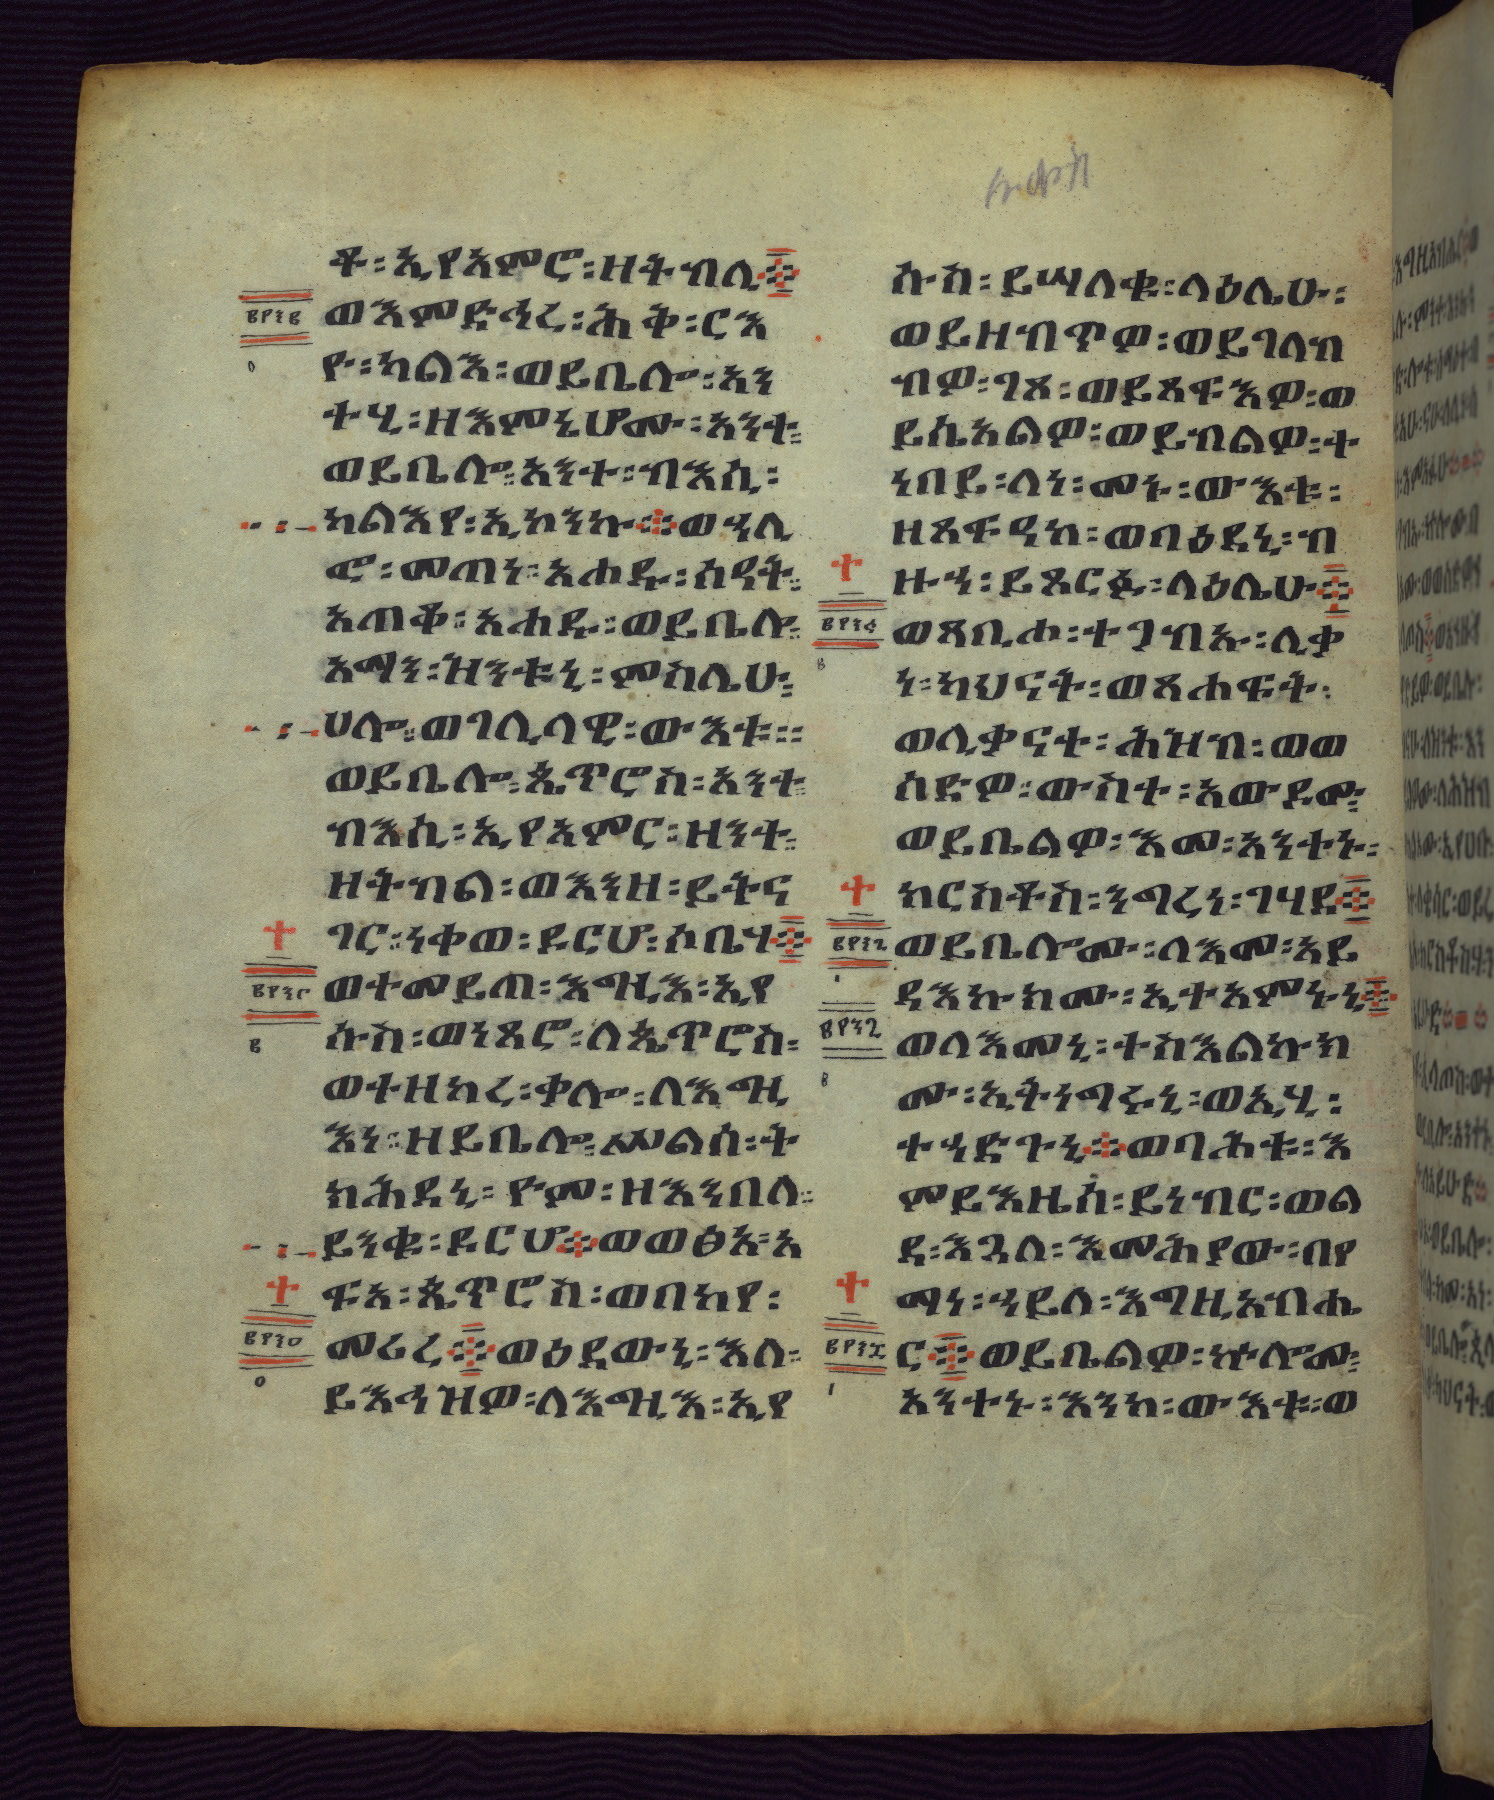 ቶ፡ኢየአምሮ፡ዘትብሊ፨
ወእምድኅረ፡ሕቅ፡ርእ
ዮ፡ካልእ፡ወይቤሎ፡አን
ተሂ፡ዘእምኔሆሙ፡አንተ፡
ወይቤሎ፡አንተ፡ብእሲ፡
ካልእየ፡ኢኮንኩ፨ወኀሊ
ፎ፡መጠነ፡አሐዱ፡ሰዓት፡
አጠቆ፡አሐዱ፡ወይቤሎ፡
አማን፡ዝንቱኒ፡ምስሌሁ፡
ሀሎ፡ወገሊላዊ፡ውእቱ፡፡
ወይቤሎ፡ጴጥሮስ፡አንተ፡
ብእሲ፡ኢየአምር፡ዘንተ፡
ዘትብል፡ወእንዘ፡ይትና
ገር፡ነቀወ፡ደርሆ፡ሶቤሃ፨
ወተመይጠ፡እግዚእ፡ኢየ
ሱስ፡ወነጸሮ፡ለጴጥሮስ፡
ወተዘከረ፡ቀሎ፡ለእግዚ
እነ፡ዘይቤሎ፡ሥልሰ፡ት
ክሕደኒ፡ዮም፡ዘእንበለ፡
ይንቁ፡ደርሆ፨ወወፅአ፡አ
ፍአ፡ጴጥሮስ፡ወበከየ፡
መሪረ፨ወዕደውኒ፡እለ፡
ይእኅዝዎ፡ለእግዚእ፡ኢየ
ሱስ፡ይሣለቁ፡ላዕሌሁ፡
ወይዘብጥዎ፡ወይገለብ
ብዎ፡ገጾ፡ወይጸፍእዎ፡ወ
ይሴአልዎ፡ወይብልዎ፡ተ
ነበይ፡ለነ፡መኑ፡ውእቱ፡
ዘጸፍዓከ፡ወባዕደኒ፡ብ
ዙኀ፡ይጸርፉ፡ላዕሌሁ፨
ወጸቢሖ፡ተጋብኡ፡ሊቃ
ነ፡ካህናት፡ወጸሐፍት፡
ወሊቃናተ፡ሕዝብ፡ወወ
ሰድዎ፡ውስተ፡አውደሙ፡
ወይቤልዎ፡እመ፡አንተኑ፡
ክርስቶስ፡ንግረነ፡ገሃደ፨
ወይቤሎሙ፡ለእመ፡አይ
ዳእኩክሙ፡ኢተአምኑኒ፨
ወለእመኒ፡ተስእልኩክ
ሙ፡ኢትነግሩኒ፡ወኢሂ፡
ተኀድጉኒ፨ወባሕቱ፡እ
ምይእዜሰ፡ይነብር፡ወል
ደ፡እጓለ፡እመሕያው፡በየ
ማነ፡ኀይለ፡እግዚአብሔ
ር፨ወይቤልዎ፡ኵሎሙ፡
አንተኑ፡እንከ፡ውእቱ፡ወ